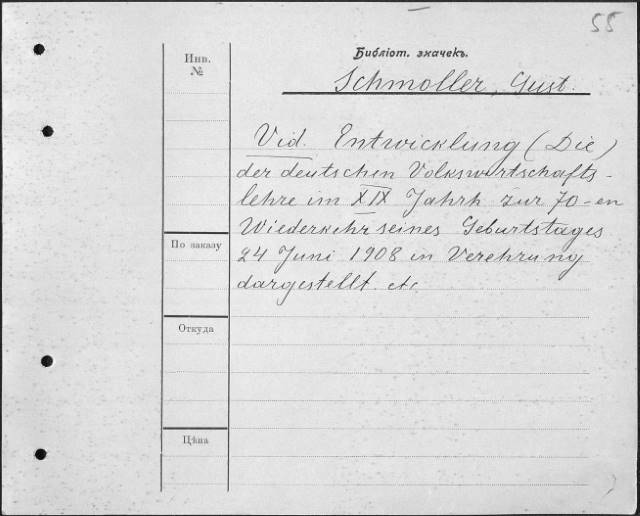 55
Инв.
№
Библіот. значекъ.
Schmoller, Gust.
Vid. Entwicklung (Die)
der deutschen Volkswirtschafts-
lehre im XIX Jahrh. zur 70-en
Wiederkehr seines Geburtstages
24 Juni 1908 in Verehrung
dargestellt etc.
По заказу
Откуда
Цѣна